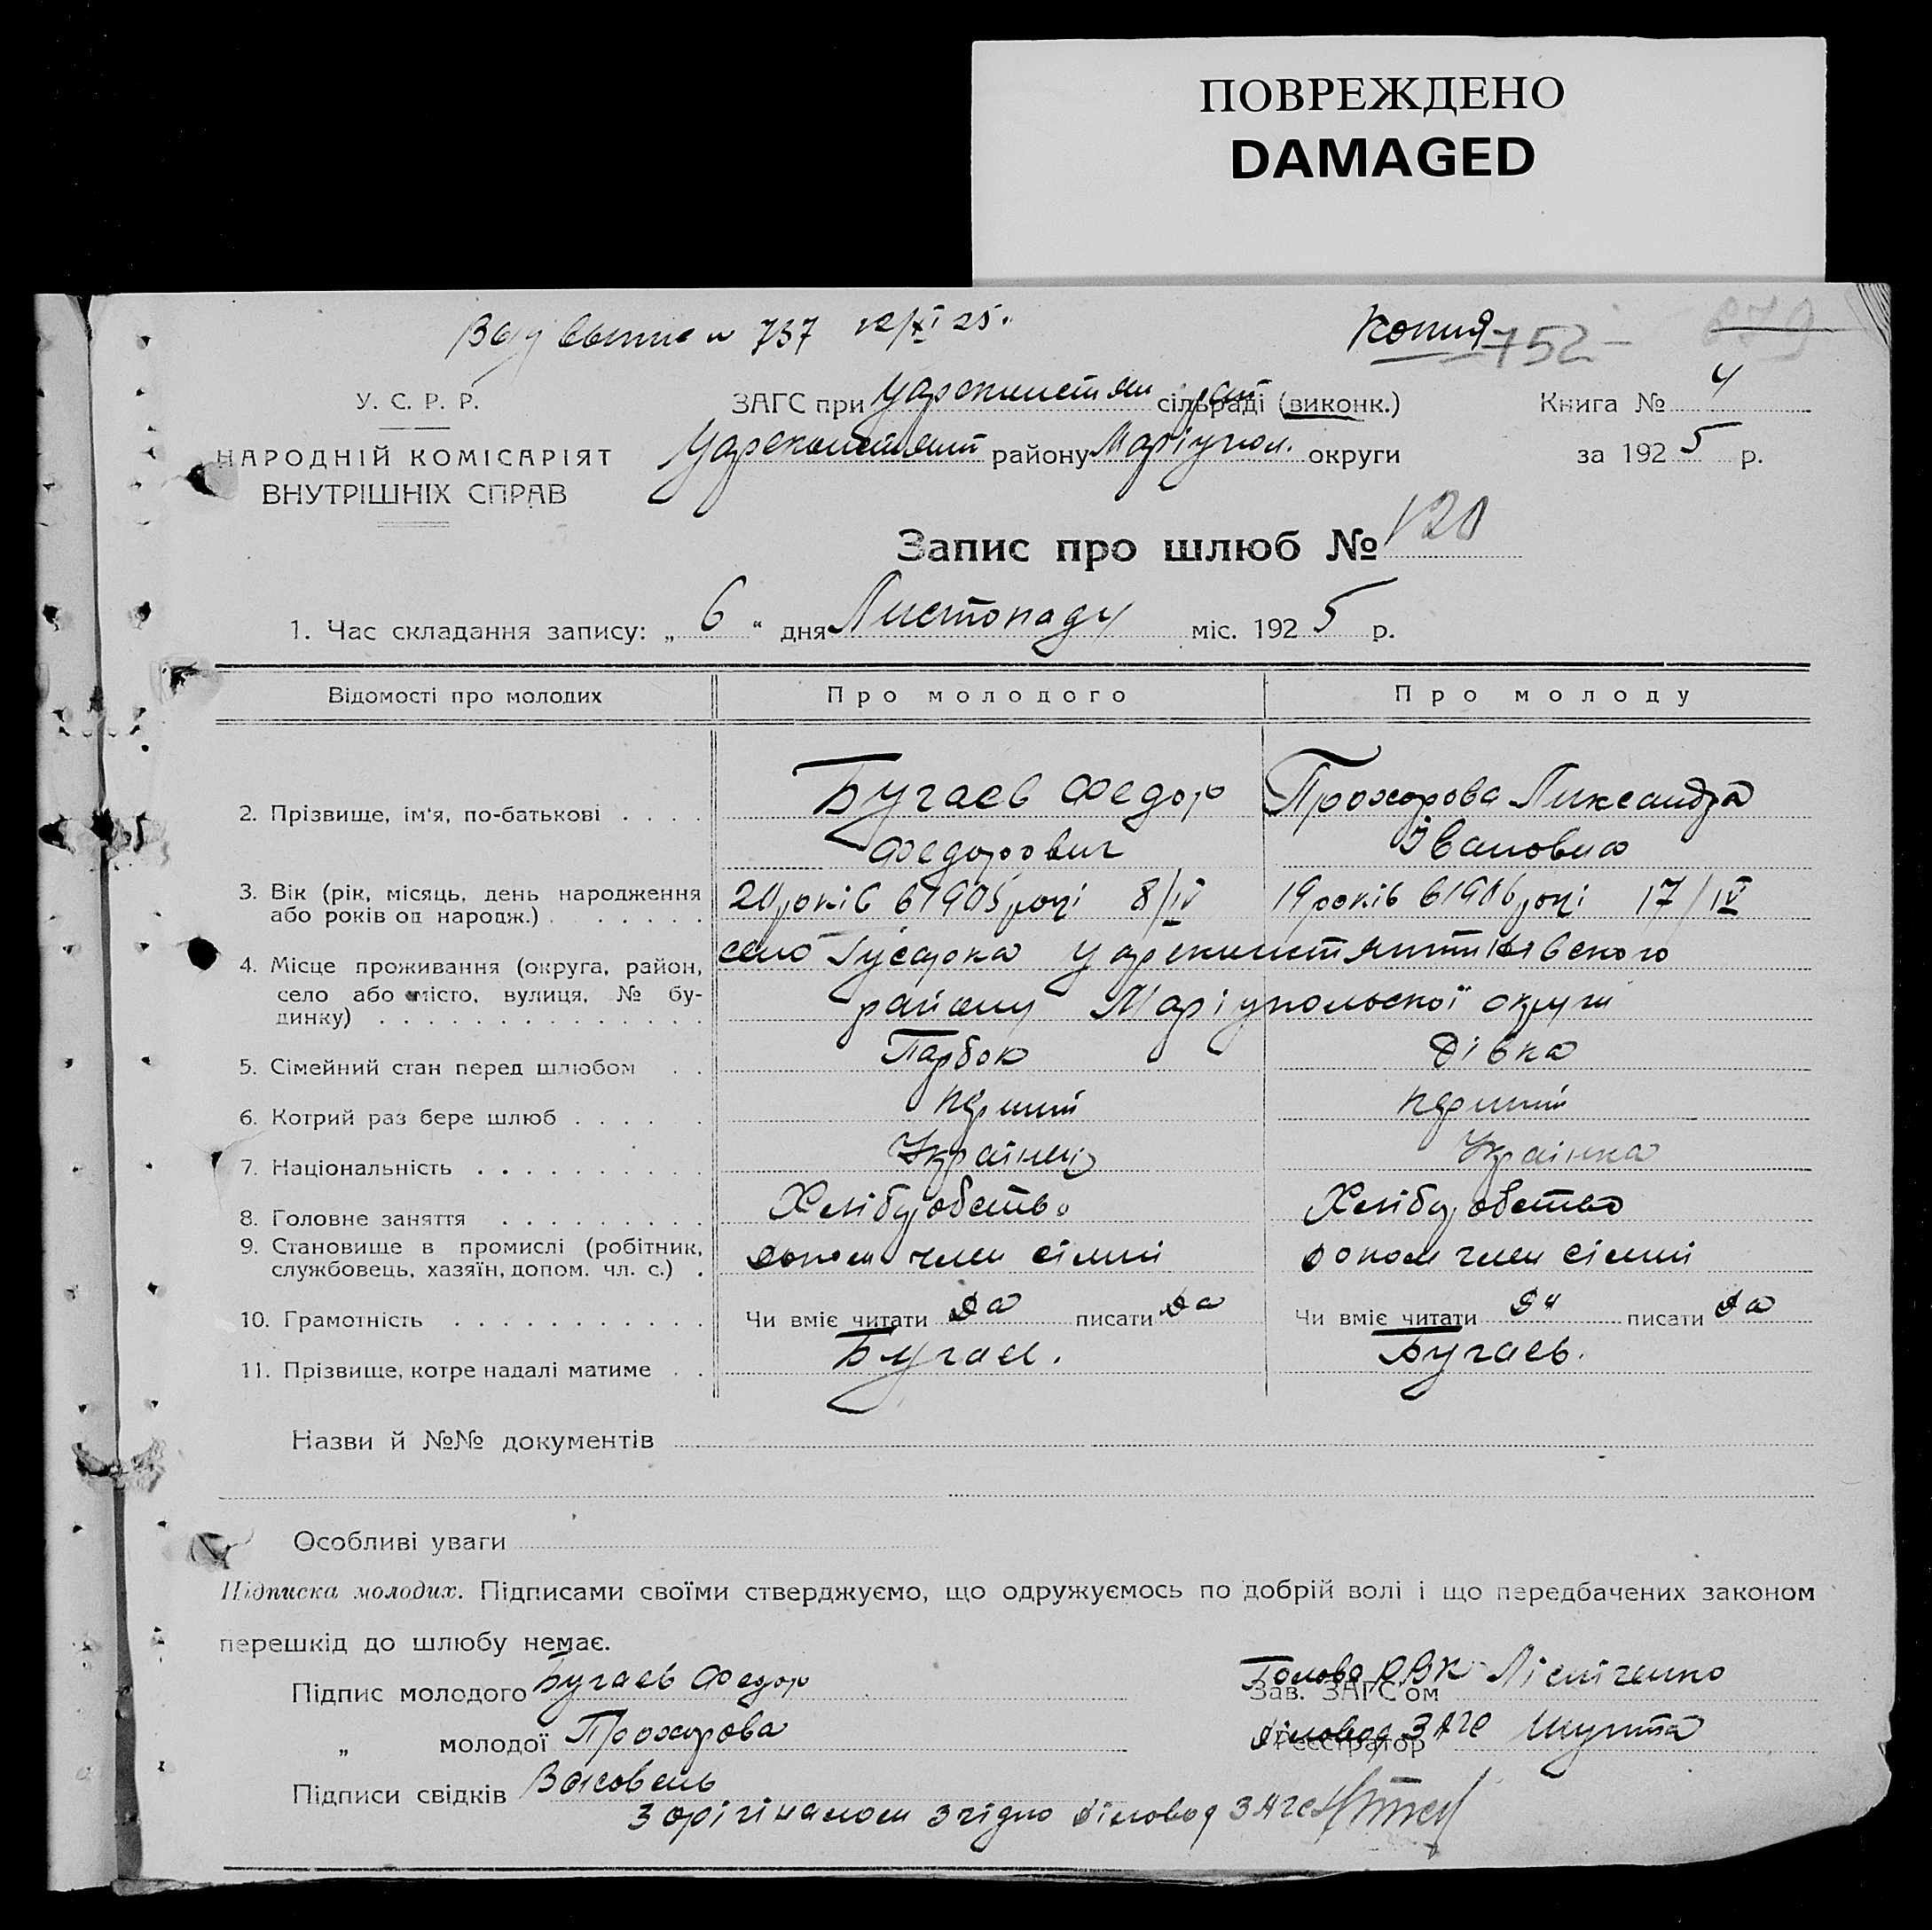 ПОВРЕЖДЕНО
DAMAGED
737 12/XI 25.
Копия 752 879
У. С. Р. Р.
НАРОДНІЙ КОМІСАРІЯТ
ВНУТРІШНІХ СПРАВ
ЗАГС при сільраді (виконк.)
району Маріупол. округи
Книга № 4
за 1925 р.
Запис про шлюб № 120
1. Час складання запису: „ 6 “ дня Листопаду міс. 1925 р.
Відомості про молодих Про молодого Про молоду
2. Прізвище, ім'я, по-батькові . . . . Бугаев Федор Прохорова Лександра
Федорович Івановна
3. Вік (рік, місяць, день народження
або років од народж.) . . . . . . . 20 років в 1905 році 8/IV 19 років в 1906 році 17/IV
4. Місце проживання (округа, район,
село або місто, вулиця, № бу-
динку) . . . . . . . . . . . . . .
село Гусарка
району Маріупольської округи
5. Сімейний стан перед шлюбом . . Парбок Дівка
6. Котрий раз бере шлюб . . . . . перший перший
7. Національність . . . . . . . . . . Українец Українка
8. Головне заняття . . . . . . . . . Хлібуробство Хлібуробство
9. Становище в промислі (робітник,
службовець, хазяїн, допом. чл. с.) . допом член сімии допом член сімии
10. Грамотність . . . . . . . . . . . Чи вміє читати да писати да Чи вміє читати да писати да
11. Прізвище, котре надалі матиме . . Бугаев. Бугаев.
Назви й №№ документів
Особливі уваги
Підписка молодих. Підписами своїми стверджуємо, що одружуємось по добрій волі і що передбачених законом
перешкід до шлюбу немає.
Підпис молодого Бугаев Федор
Голова РВК Лісніченко
Зав. ЗАГС'ом
„ молодої Прохорова
Діловод ЗАГС Шульга
Реєстратор
Підписи свідків
З орігіналом згідно діловод ЗАГС